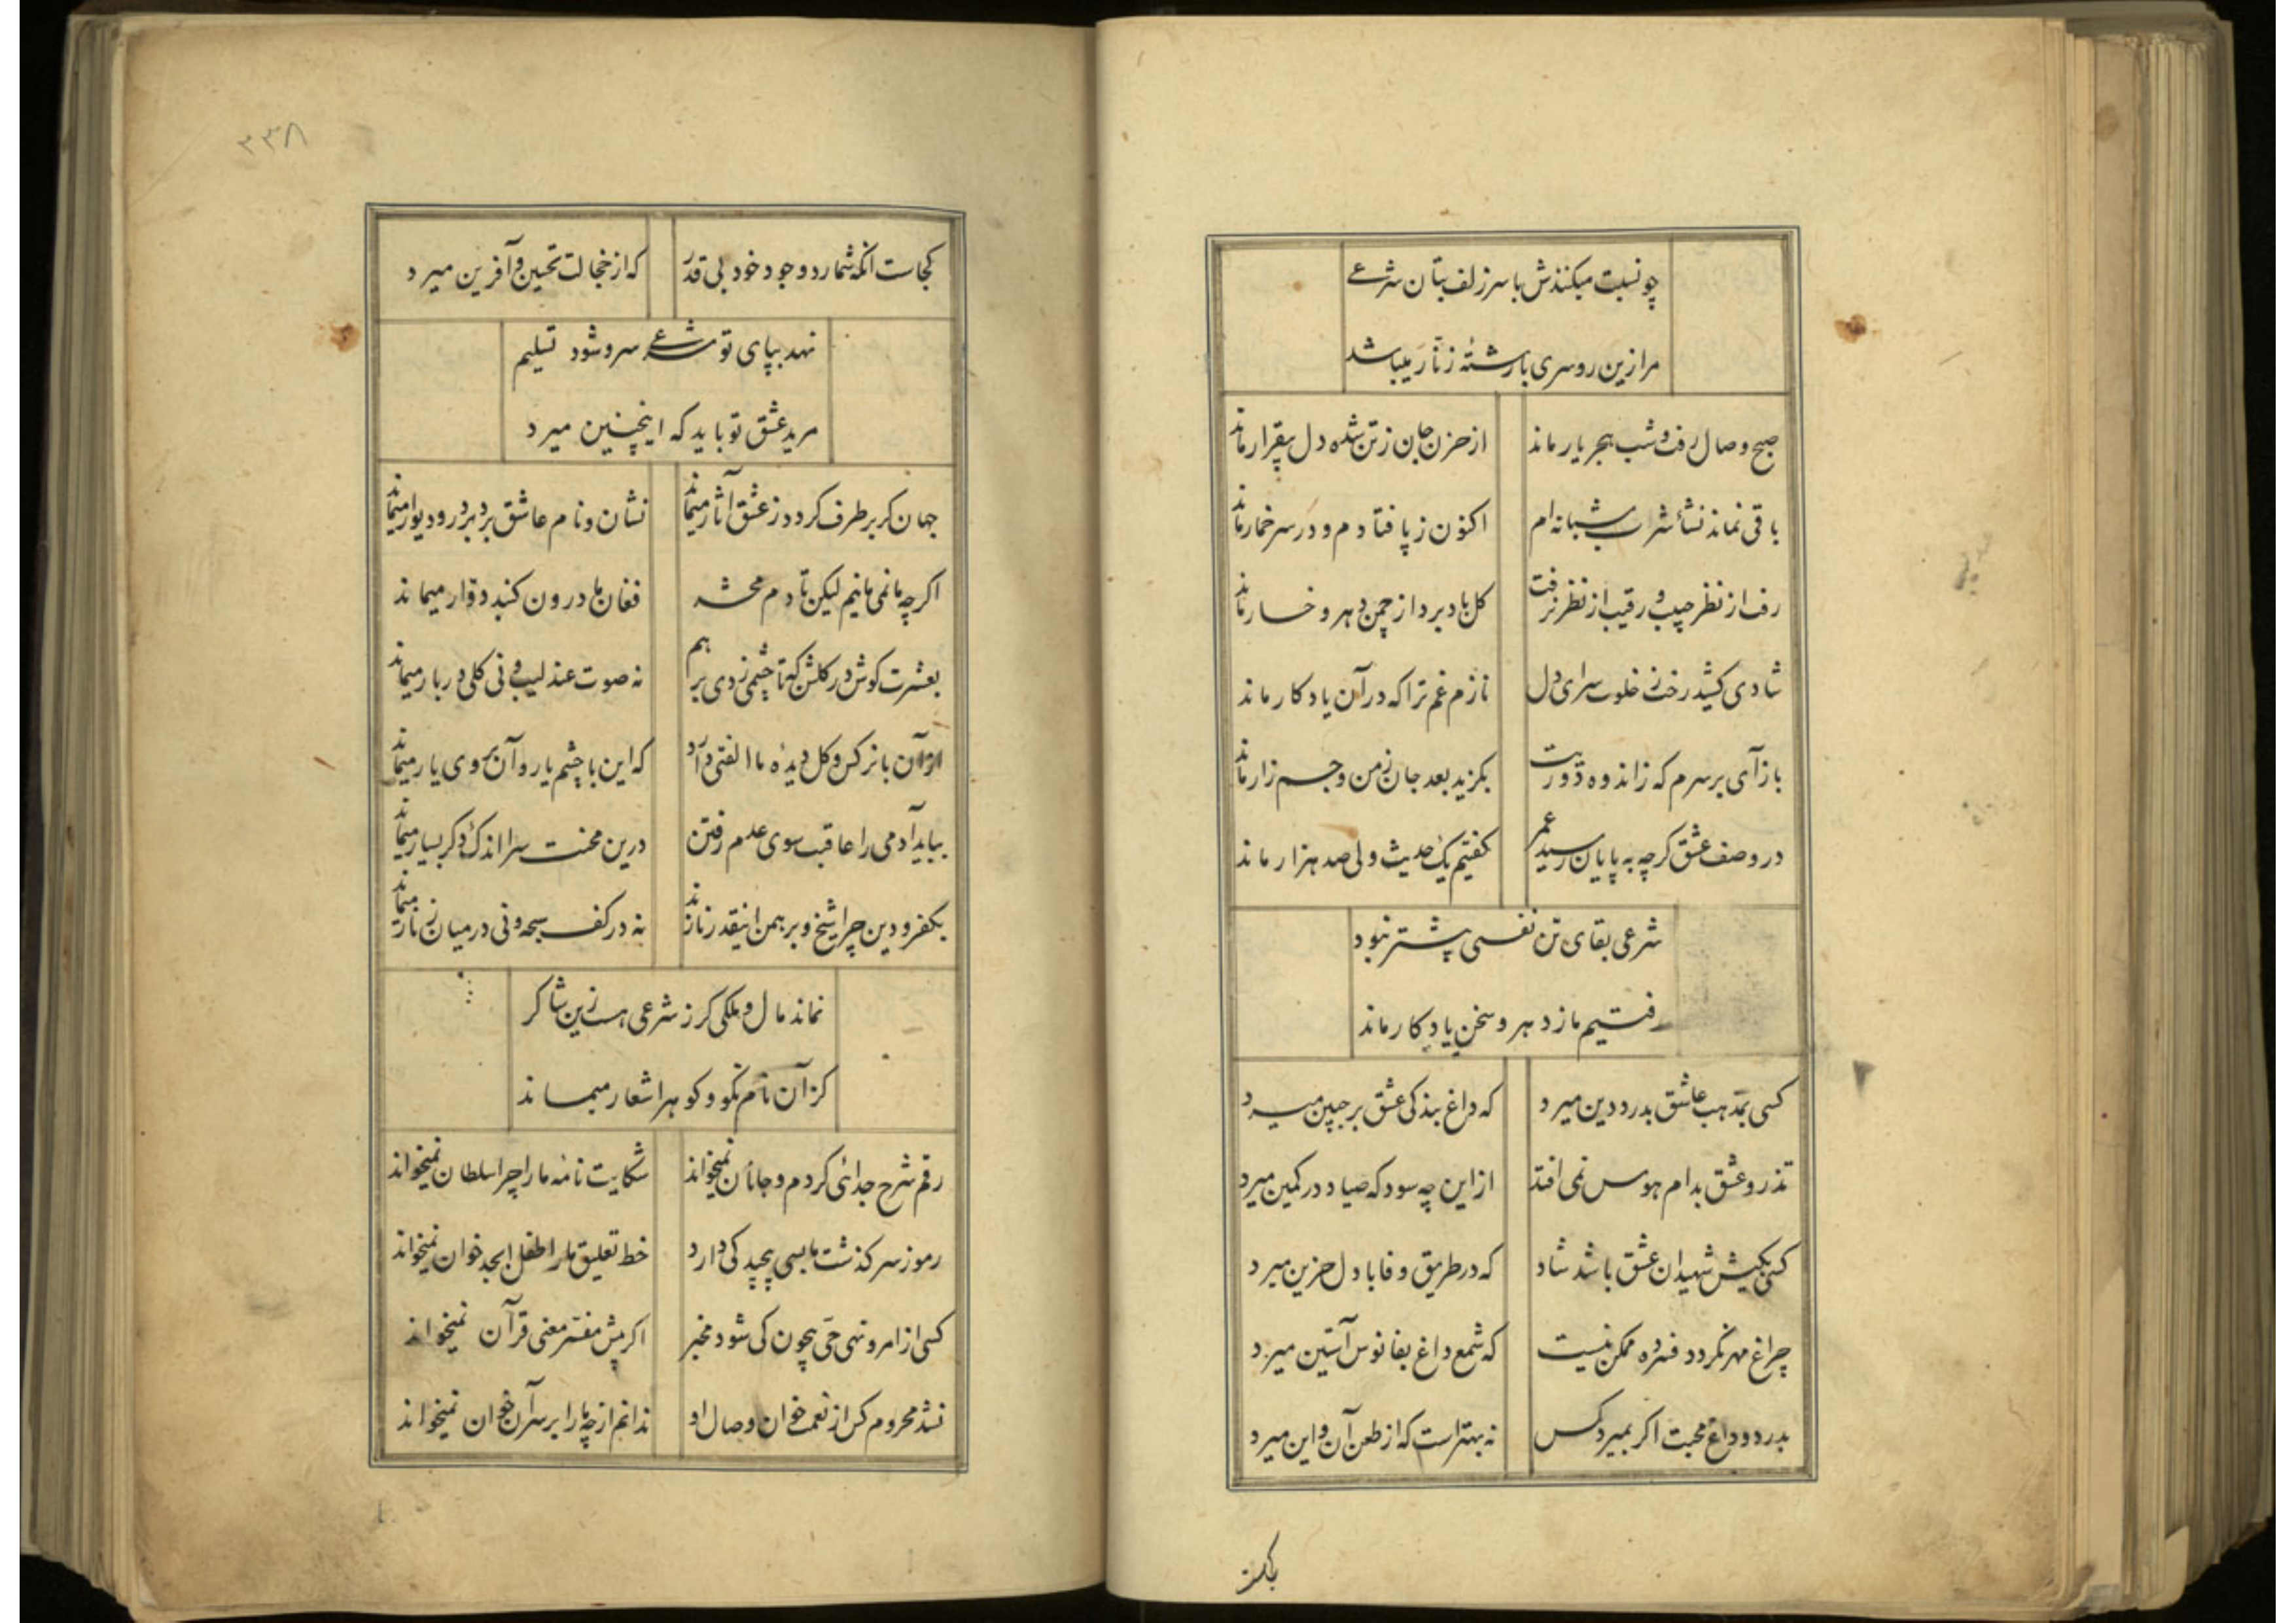 چو نسبت میکنندش با سر زلف بتان شرعی
مرا زین رو سری با رشتهٔ زنّار میباشد
صبح وصال رفت و شب هجر یار ماند از حزن جان ز تن شده دل بیقرار ماند
باقی نماند نشأ شراب شبانه ام اکنون ز پا فتادم و در سر خمار ماند
رفت از نظر حبیب و رقیب از نظر نرفت کل باد برد از چمن دهر و خار ماند
شادی کشید رخت ز خلوت سرای دل نازم غم ترا که در آن یادکار ماند
باز آی بر سرم که ز اندوه دوریت بکزید بعد جان ز من و جسم زار ماند
در وصف عشق کرچه به پایان رسید عمر کفتیم یک حدیث ولی صد هزار ماند
شرعی بقای تن نفسی بیشتر نبود
رفتیم ما ز دهر و سخن یادکار ماند
کسی بمذهب عاشق بدرد دین میرد که داغ بندکی عشق بر جبین میرد
تذرو عشق بدام هوس نمی افتد از این چه سود که صیاد در کمین میرد
کسی بکیش شهیدان عشق باشد شاد که در طریق وفا با دل حزین میرد
چراغ مهر نکردد فسرده ممکن نیست که شمع داغ بفانوس آستین میرد
بدرد و داغ محبت اکر بمیرد کس نه بهتر است که از طعن آن و این میرد
کجاست
۳۳۸
کجاست انکه شمارد وجود خود بی قدر که از خجالت تحسین و آفرین میرد
نهد بپای تو شرعی سر و شود تسلیم
مرید عشق تو باید که اینچنین میرد
جهان کر بر طرف کردد ز عشق آثار میماند نشان و نام عاشق بر در و دیوار میماند
اکرچه ما نمی مانیم لیکن تا دم محشر فغان ما درون کنبد دوّار میماند
بعشرت کوش در کلشن که تا چشمی زدی بر هم نه صوت عندلیب و نی کلی در بار میماند
از آن با نرکس و کل دیدهٔ ما الفتی دارد که این با چشم یار و آن بروی یار میماند
بباید آدمی را عاقبت سوی عدم رفتن درین محنت سرا اندک و کر بسیار میماند
بکفر و دین چرا شیخ و برهمن اینقدر نازند نه در کف سبحه و نی در میان زنّار میماند
نماند مال و ملکی کر ز شرعی هست زین شاکر
کز آن نام نکو و کوهر اشعار میماند
رقم شرح جدائی کردم و جانان نمیخواند شکایت نامهٔ ما را چرا سلطان نمیخواند
رموز سرکذشت ما بسی پیچیدکی دارد خط تعلیق ما را طفل ابجد خوان نمیخواند
کسی از امر و نهی حیّ بیچون کی شود مخبر اکر پیش مفسّر معنی قرآن نمیخواند
نشد محروم کس از نعمت خوان وصال او ندانم از چه ما را بر سر آن خوان نمیخواند